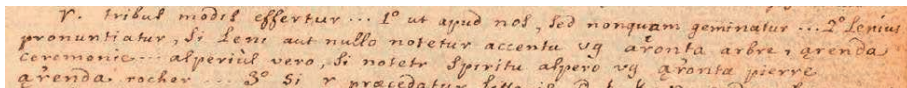 r. tribus modis effertur ... 1º ut apud nos, sed nonquam geminatur ... 2º Lenius
pronuntiatur, si Leni aut nullo notetur accentu vg aronta arbre, arenda
ceremonie ... asperiùs vero, si notetr spiritu aspero vg aronta pierre
arenda rocher ... 3º si r præcedatur